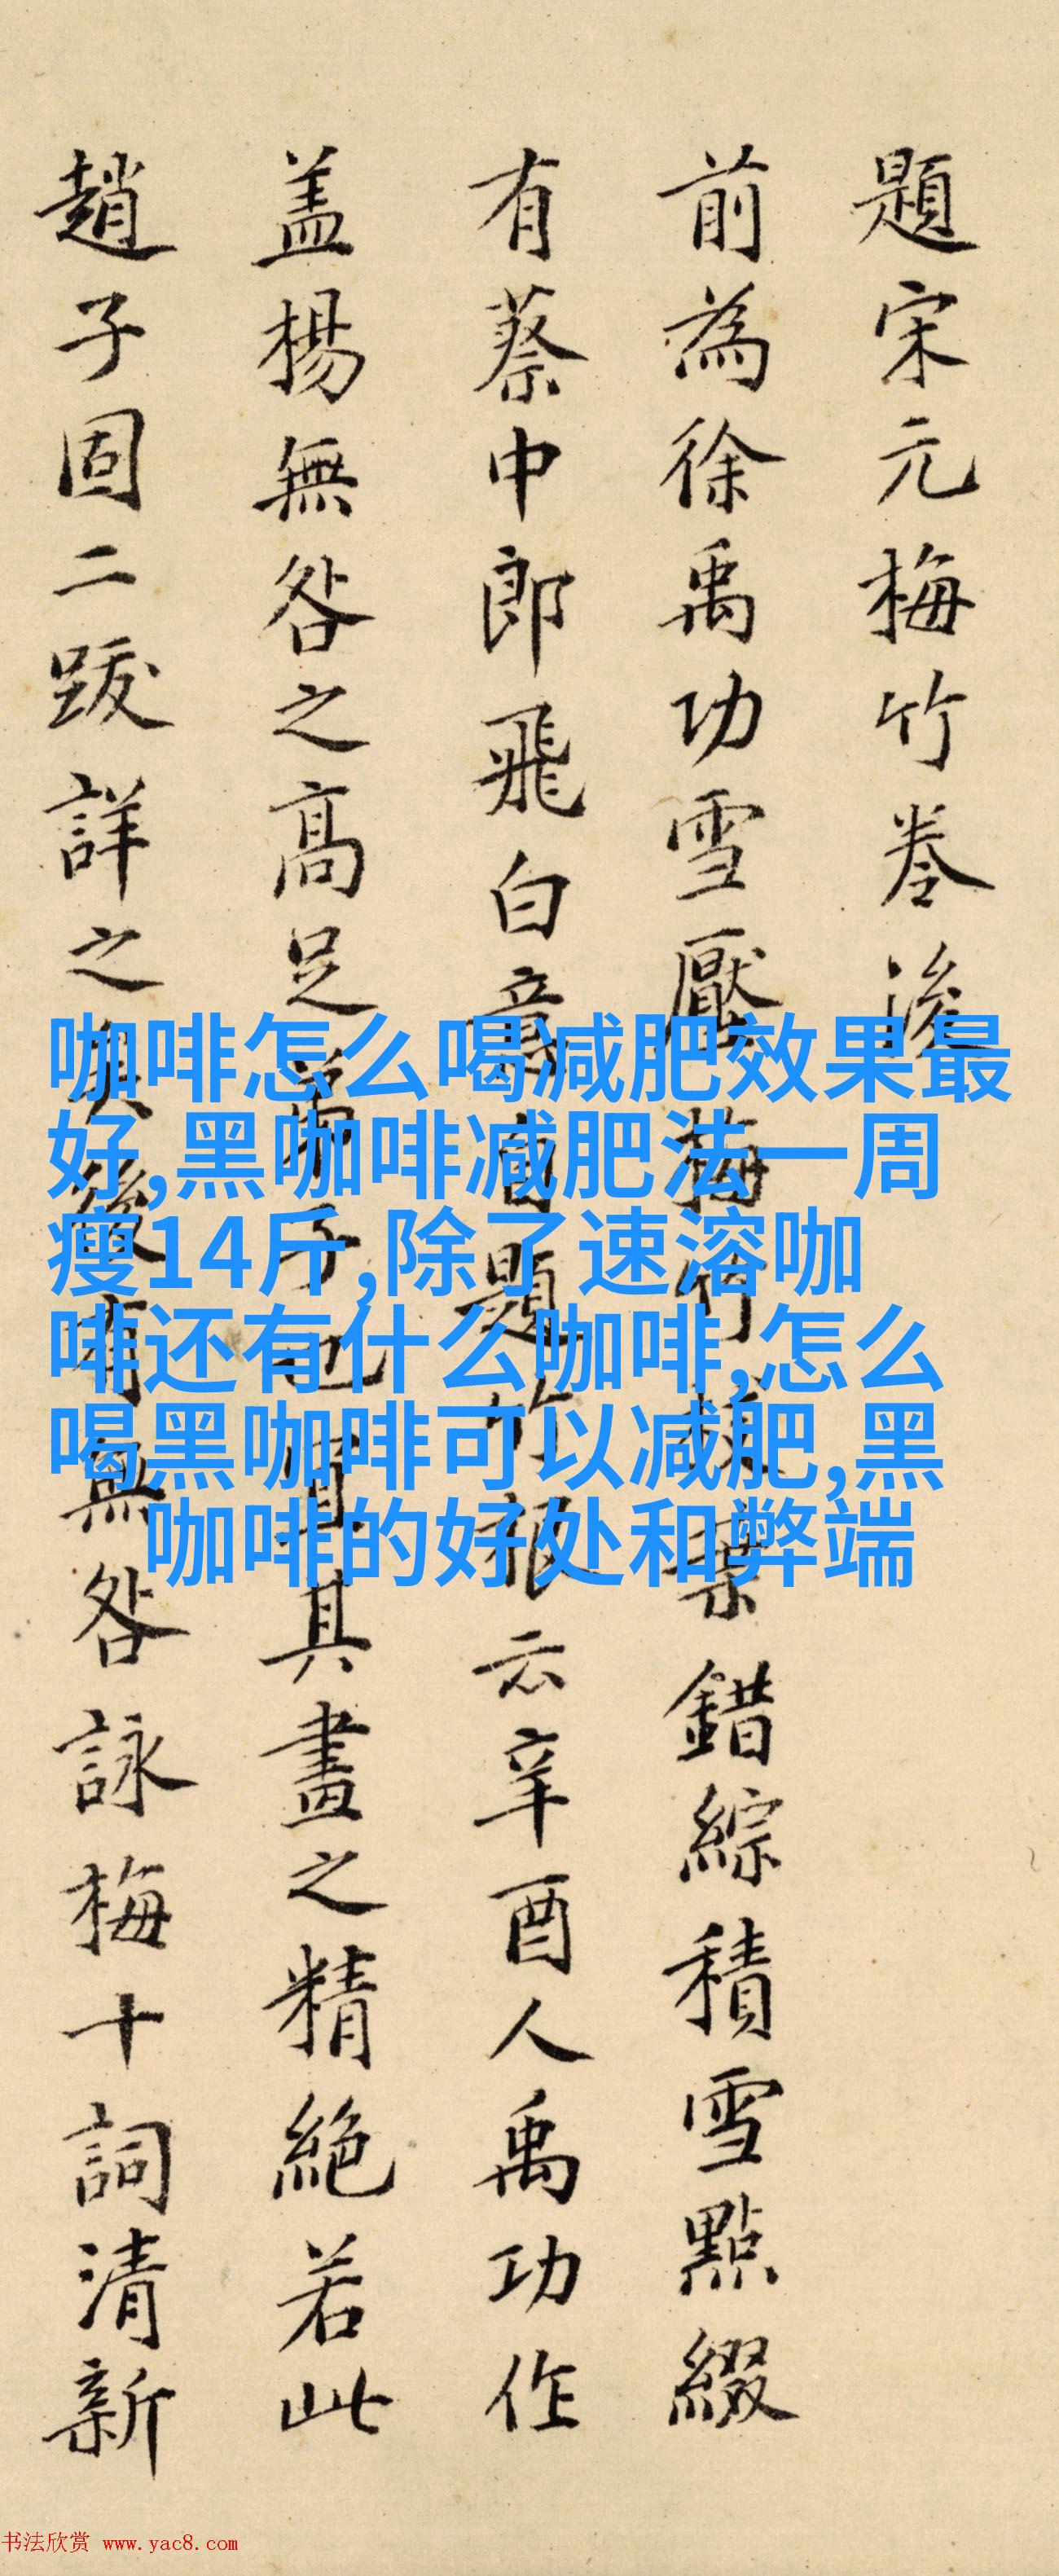 題宋元梅竹卷後
前為徐禹功雪壓梅竹枝葉錯綜積雪點綴
有蔡中郎飛白意自題竹根云辛酉人禹功作
盖楊無咎之高足弟子也且其畫之精絕若此
趙子固二跋詳之矣後有無咎詠梅十詞清新
咖啡怎么喝减肥效果最
好,黑咖啡减肥法一周
瘦14斤,除了速溶咖
啡还有什么咖啡,怎么
喝黑咖啡可以减肥,黑
咖啡的好处和弊端
书法欣赏 www.yac8.com